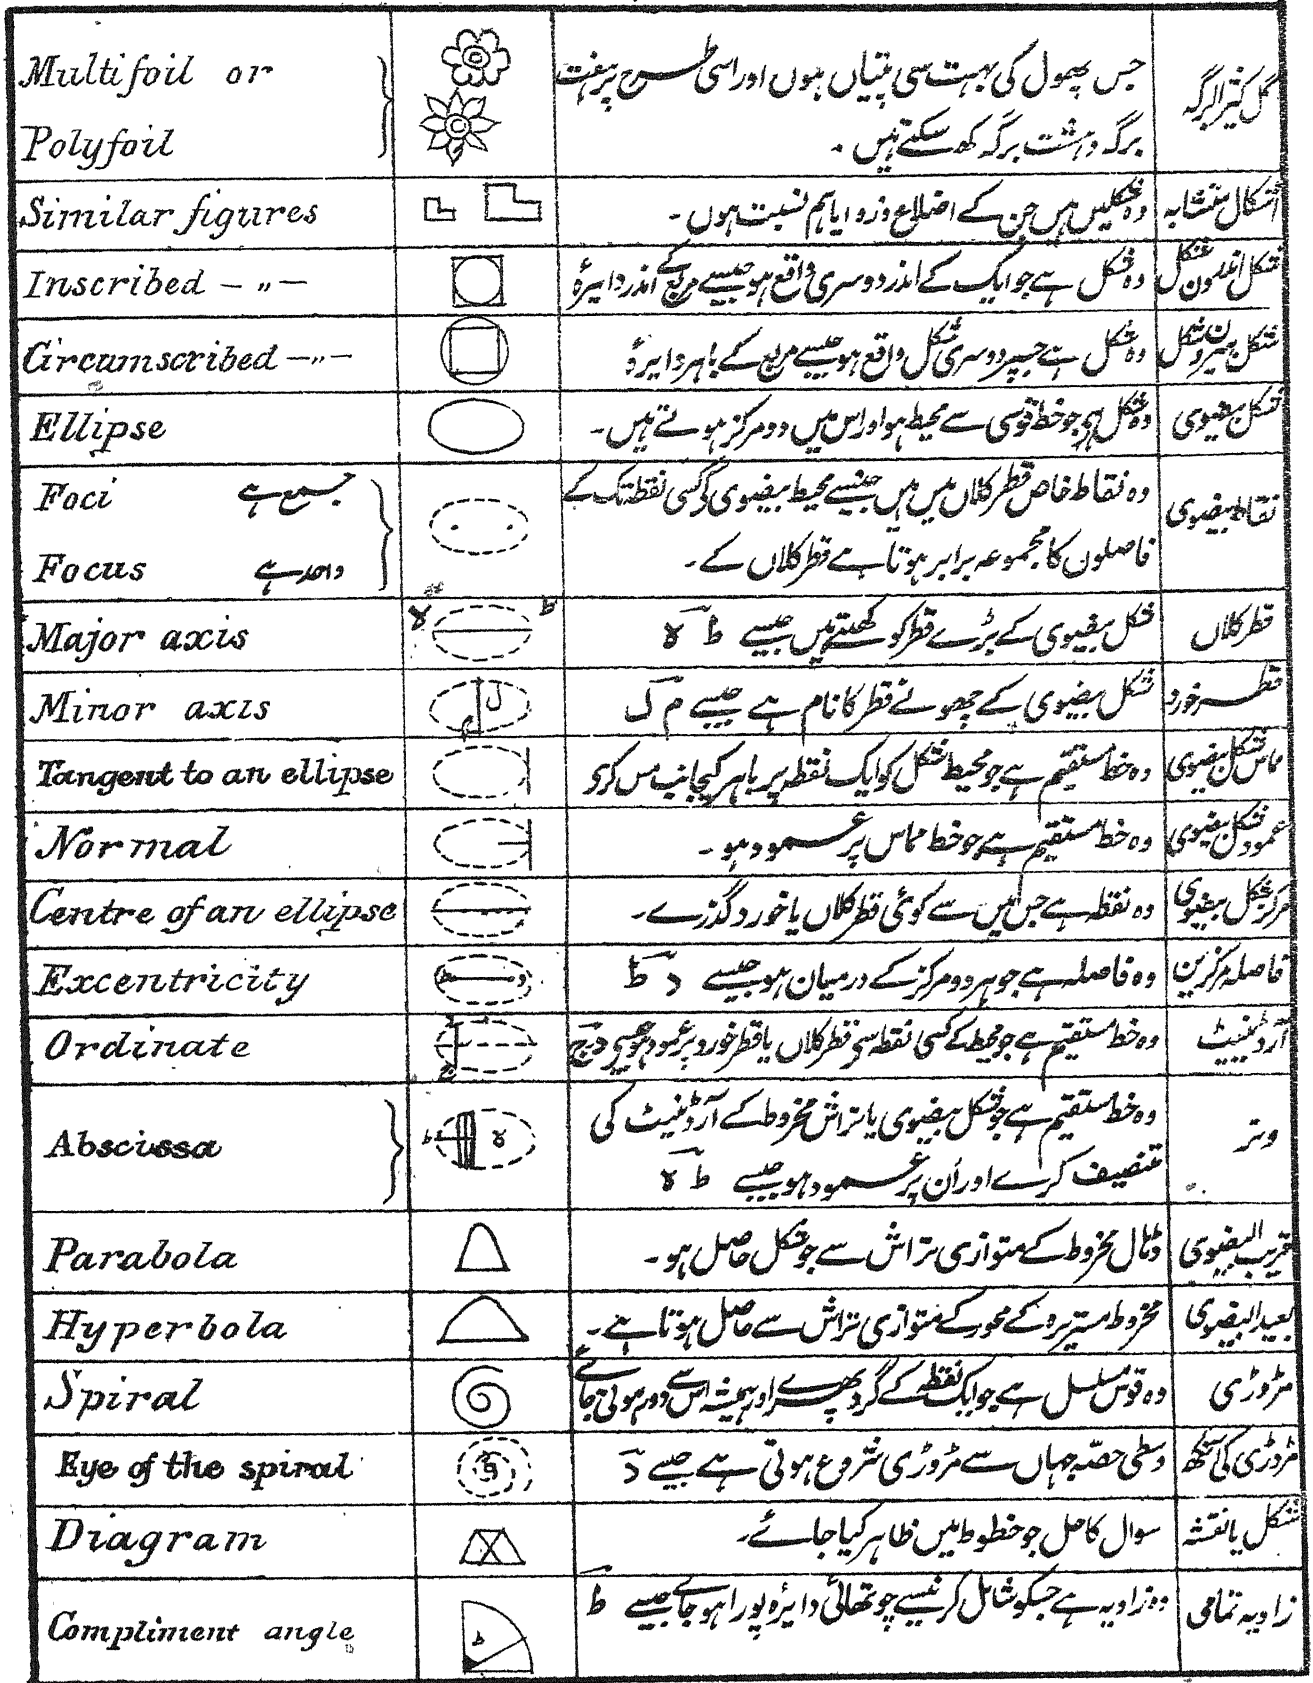 Multifoil or
Polyfoil
جس پھول کی بہت سی پتیاں ہوں اور اسی طرح پر ہفت
برگہ وہشت برگہ کہہ سکتے ہیں
گل کثیر البرگہ
Similar figures
وہ شکلیں ہیں جن کے اضلاع و زوایا ہم نسبت ہوں۔
اشکال متشابہ
Inscribed — „ —
وہ شکل ہے جو ایک کے اندر دوسری واقع ہو جیسے مربع کے اندر دایرۂ
شکل اندرون شکل
Circumscribed — „ —
وہ شکل ہے جسپر دوسری شکل واقع ہو جیسے مربع کے باہر دایرۂ
شکل بیرون شکل
Ellipse
وہ شکل ہے جو خط قوسی سے محیط ہو اور اس میں دو مرکز ہوتے ہیں۔
شکل بیضوی
Foci جمع ہے
Focus واحد ہے
وہ نقاط خاص قطر کلاں میں ہیں جنسے محیط بیضوی کے کسی نقطہ تک کے
فاصلوں کا مجموعہ برابر ہوتا ہے قطر کلاں کے۔
نقاط بیضوی
Major axis
ہ ط
شکل بیضوی کے بڑے قطر کو کہتے ہیں جیسے ط ہ
قطر کلاں
Minor axis
ل م
شکل بیضوی کے چھوٹے قطر کا نام ہے جیسے م ل
قطر خورد
Tangent to an ellipse
وہ خط مستقیم ہے جو محیط شکل کو ایک نقطہ پر باہر کیجانب مس کری
مماس شکل بیضوی
Normal
وہ خط مستقیم ہے جو خط مماس پر عمود ہو۔
عمود شکل بیضوی
Centre of an ellipse
وہ نقطہ ہے جس میں سے کوئی قطر کلاں یا خورد گذرے۔
مرکز شکل بیضوی
Excentricity
وہ فاصلہ ہے جو ہر دو مرکز کے درمیان ہو جیسے د ط
فاصلہ مرکزین
Ordinate
وہ خط مستقیم ہے جو محیط کے کسی نقطہ سے قطر کلاں یا قطر خورد پر عمود ہو جیسے
آرڈینیٹ
Abscissa
ط ہ
وہ خط مستقیم ہے جو شکل بیضوی یا تراش مخروط کے آرڈینیٹ کی
تنصیف کرے اور اُن پر عمود ہو جیسے ط ہ
وتر
Parabola
مخروط کے متوازی تراش سے جو شکل حاصل ہو۔
قریب البیضوی
Hyperbola
مخروط مستدیرہ کے محور کے متوازی تراش سے حاصل ہوتا ہے۔
بعید البیضوی
Spiral
وہ قوس مسلسل ہے جو ایک نقطہ کے گرد پھرے اور ہمیشہ اس سے دور ہوتی جائے
مڑوڑی
Eye of the spiral
وسطی حصّہ جہاں سے مڑوڑی شروع ہوتی ہے جیسے د
مڑوڑی کی آنکھ
Diagram
سوال کا حل جو خطوط میں ظاہر کیا جائے۔
شکل یا نقشہ
Compliment angle
ط
وہ زاویہ ہے جسکو شامل کرنیسے چوتھائی دایرہ پورا ہو جائے جیسے ط
زاویہ تمامی